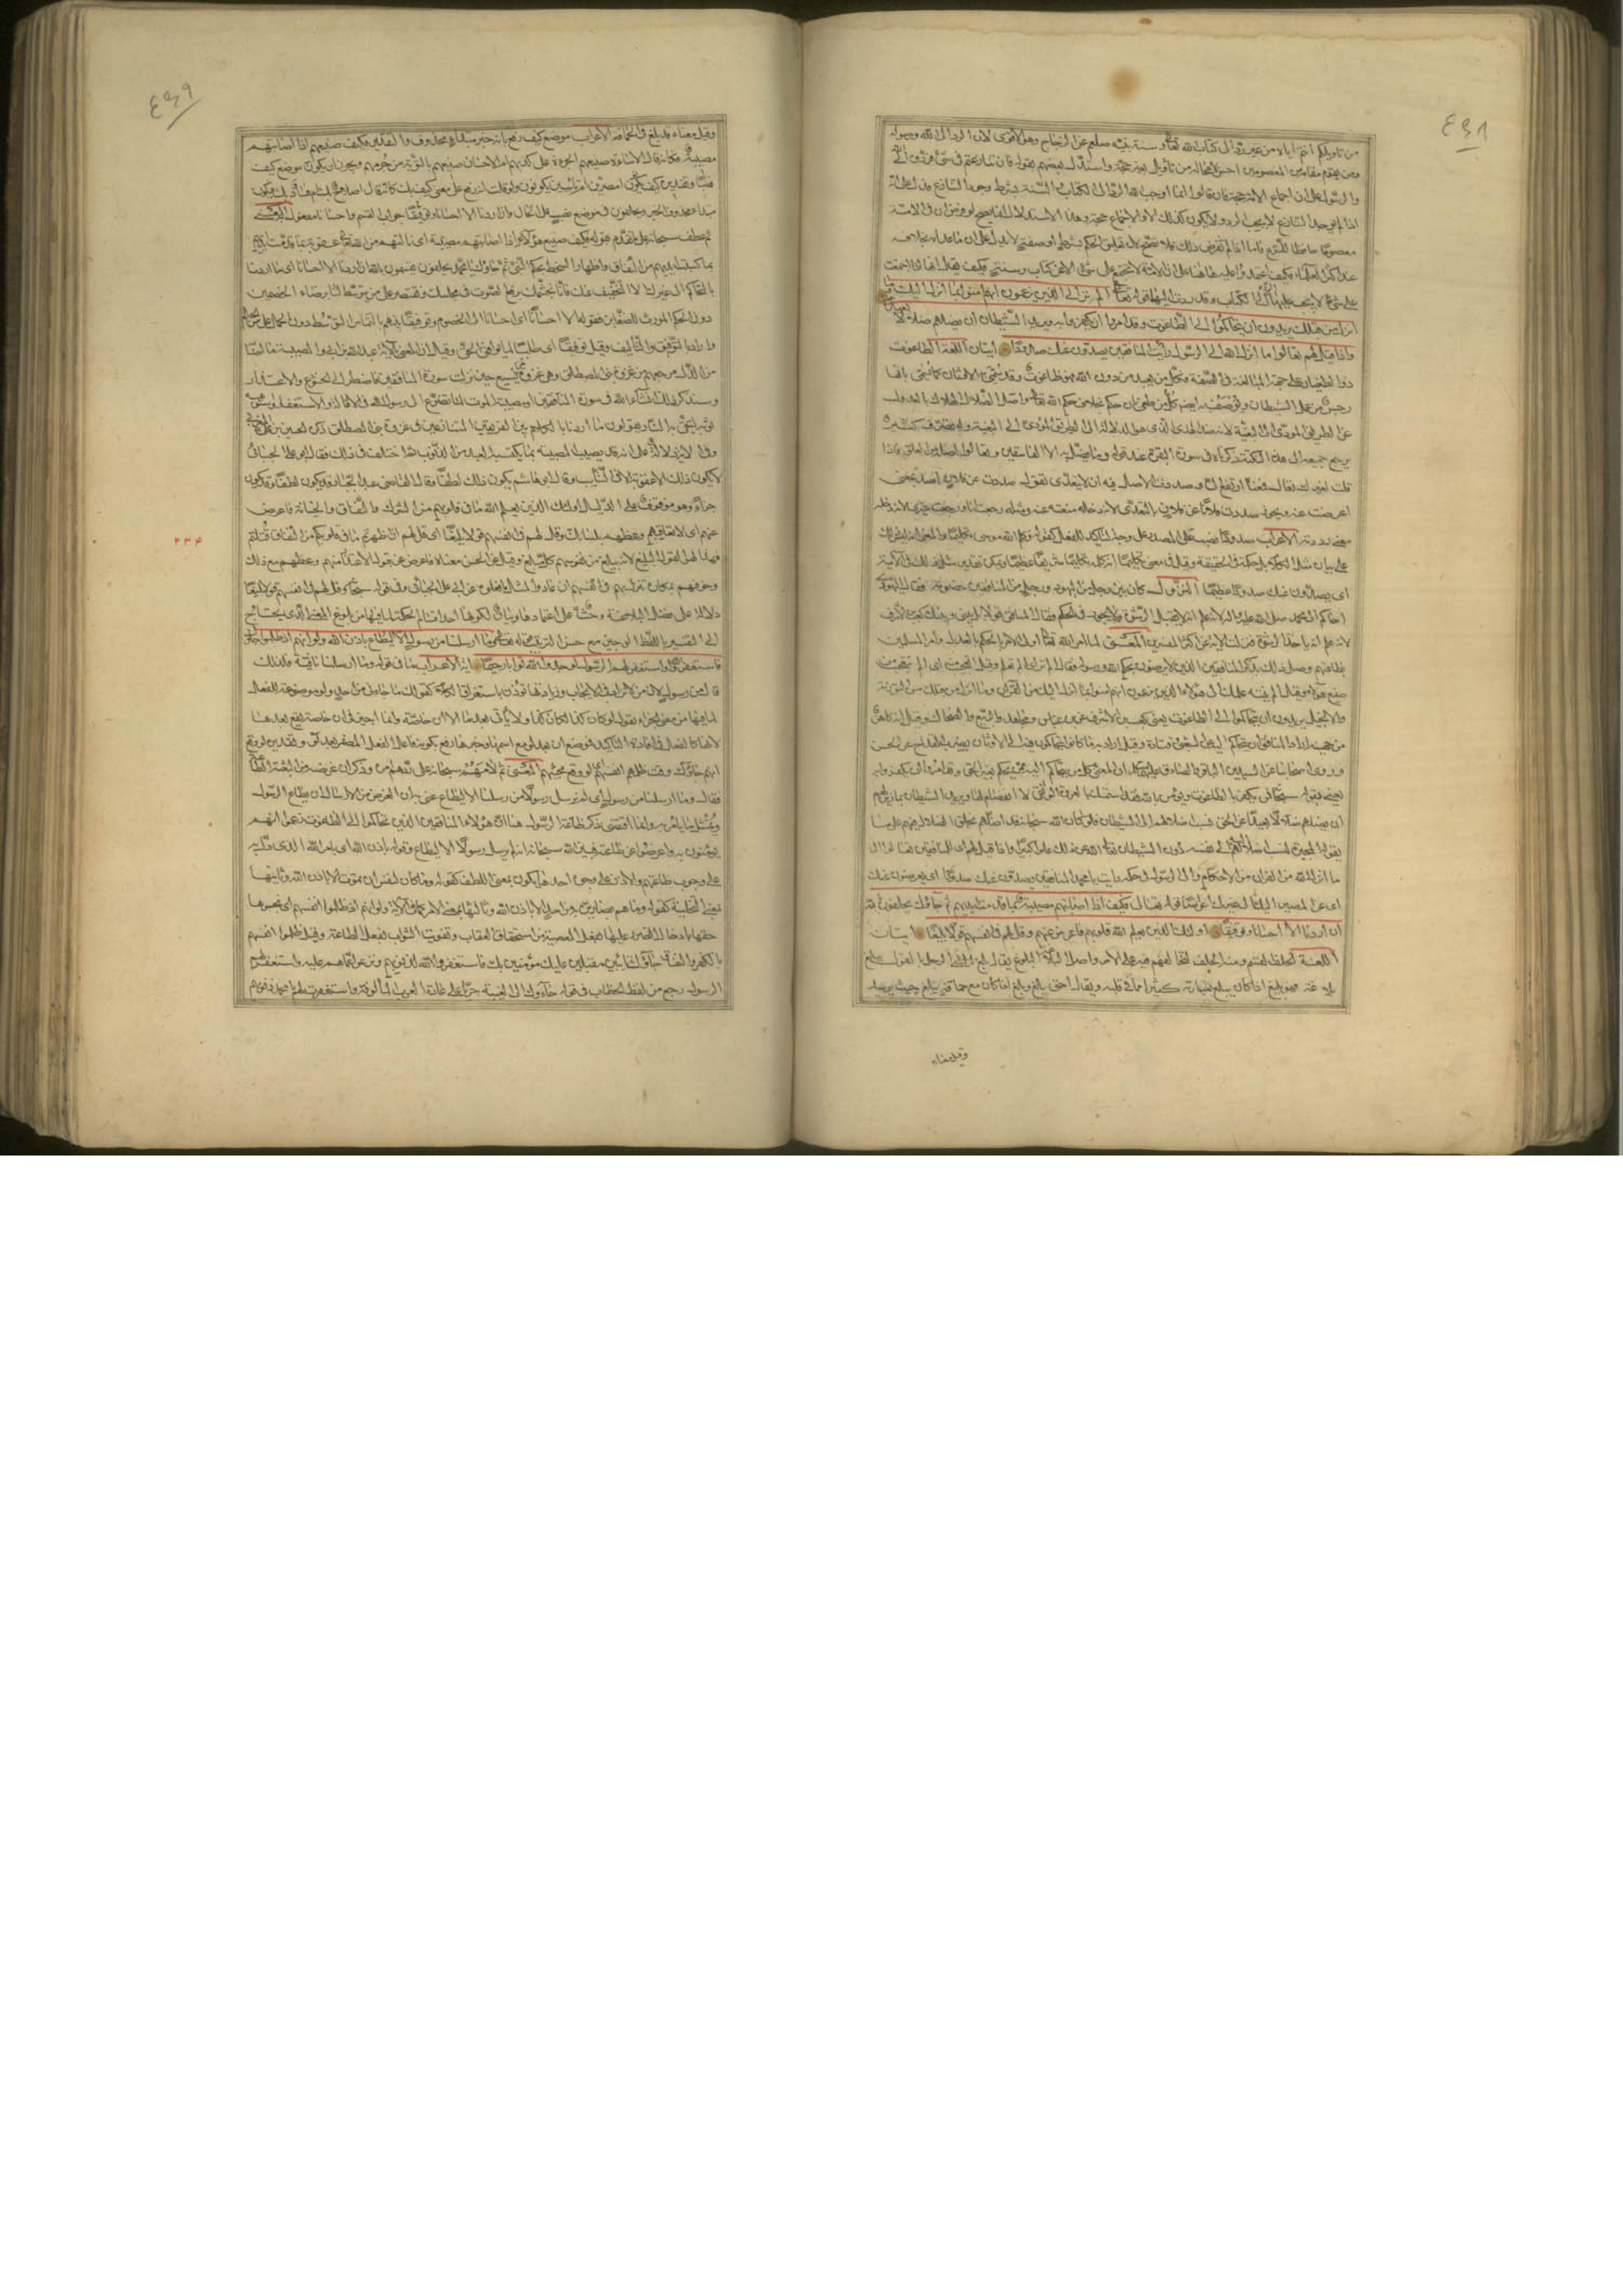 من تاويلكم انتم اياه من غير رد الى كتاب الله تعالى وسنة نبيه صلعم عن الزجاج وهو الاقوى لان الرد الى الله ورسوله
ومن يقوم مقامه من المعصومين احسن لا محالة من تاويل بغير حجة واستدل بعضهم بقوله فان تنازعتم في شئ فردوه الى الله
والرسول على ان اجماع الامة حجة فان قالوا انما اوجب الله الرد الى الكتاب والسنة بشرط وجود التنازع فدل على انه
اذا لم يوجد التنازع لا يجب الرد ولا يكون كذلك الا والاجماع حجة وهذا الاستدلال انما يصح لو فرض ان في الامة
معصوما حافظا للشرع فاما اذا لم يفرض ذلك فلا يصح لان تعليق الحكم بشرط او صفة لا يدل على ان ما عداه بخلافه
عند اكثر العلماء فكيف اعتمدوا عليه هاهنا على ان الامة لا تجتمع على شئ الا عن كتاب وسنة وكيف يقال انها اذا اجمعت
على شئ لا يجب عليها الرد الى الكتاب وقد ردت اليها قوله تعالى الم تر الى الذين يزعمون انهم امنوا بما انزل اليك وما
انزل من قبلك يريدون ان يتحاكموا الى الطاغوت وقد امروا ان يكفروا به ويريد الشيطان ان يضلهم ضلالا
واذا قيل لهم تعالوا ما انزل الله الى الرسول رايت المنافقين يصدون عنك صدودا ايتان اللغة الطاغوت
ذو الطغيان على جهة المبالغة في الصفة فكل من يعبد من دون الله فهو طاغوت وقد تسمى به الاوثان كما تسمى بانها
رجس من عمل الشيطان ويوصف به ايضا كل من طغى بان حكم بخلاف حكم الله تعالى واصل الضلال الهلاك بالعدول
عن الطريق المودي الى البغية لانه ضد الهدى الذي هو الدلالة الى الطريق المودي الى البغية وله تصرف كثيرة
يرجع جميعه الى هذه النكتة ذكرناه في سورة البقرة عند قوله وما يضل به الا الفاسقين وتعالوا اصله من العلو فاذا
قلت لغيرك تعال فمعناه ارتفع الي وصددت الاصل فيه ان لا يتعدى تقول صددت عن فلان اصد بمعنى
اعرضت عنه ويجوز صددت فلانا عن فلان بالتعدي لانه دخله منعته عنه ومثله رجعت انا ورجعت غيري لانه دخله
معنى رددته الاعراب صدودا نصب على المصدر على وجه التاكيد للفعل كقوله وكلم الله موسى تكليما والمعنى انه ليس ذلك
على بيان مثل الكلام بل كلمه في الحقيقة وقيل في معنى تكليما انه كلمه تكليما شريفا عظيما ويمكن تقدير مثل ذلك في الاية
اى يصدون عنك صدودا عظيما النزول كان بين رجل من اليهود ورجل من المنافقين خصومة فقال اليهودي
احاكم الى محمد صلى الله عليه واله لانه علم انه لا يقبل الرشوة ولا يجور في الحكم فقال المنافق لا بل بيني وبينك كعب بن الاشرف
لانه علم انه ياخذ الرشوة فنزلت الاية عن اكثر المفسرين المعنى لما امر الله تعالى اولي الامر بالحكم بالعدل وامر المسلمين
بطاعتهم وصل ذلك بذكر المنافقين الذين لا يرضون بحكم الله ورسوله فقال الم تر اى الم تعلم وقيل انه تعجب منه اى الم تتعجب من
صنيع هؤلاء وقيل الم ينته علمك الى هؤلاء الذين يزعمون انهم امنوا بما انزل اليك من القران وما انزل من قبلك من التورية
والانجيل يريدون ان يتحاكموا الى الطاغوت يعني كعب بن الاشرف عن ابن عباس ومجاهد والربيع والضحاك وقيل انه كاهن
من جهينة اراد المنافق ان يتحاكم اليه عن الشعبي وقتادة وقيل اراد به ما كانوا يتحاكمون فيه الى الاوثان بضرب القداح عن الحسن
وروى اصحابنا عن السيدين الباقر والصادق عليهما السلام ان المعني به كل من يتحاكم اليه ممن يحكم بغير الحق وقد امروا ان يكفروا به
يعني به قوله سبحانه فمن يكفر بالطاغوت ويؤمن بالله فقد استمسك بالعروة الوثقى لا انفصام لها ويريد الشيطان بما زين لهم
ان يضلهم ضلالا بعيدا عن الحق فنسب اضلالهم الى الشيطان فلو كان الله سبحانه قد اضلهم بخلق الضلال فيهم على ما
يقوله المجبرة لنسب اضلالهم الى نفسه دون الشيطان تعالى الله عن ذلك علوا كبيرا واذا قيل لهم اى للمنافقين تعالوا الى
ما انزل الله من القران من الاحكام والى الرسول في حكمه رايت يا محمد المنافقين يصدون عنك صدودا اى يعرضون عنك
اى عن المصير اليك الى غيرك اعراضا قوله تعالى فكيف اذا اصابتهم مصيبة بما قدمت ايديهم ثم جاؤك يحلفون بالله
ان اردنا الا احسانا وتوفيقا اولئك الذين يعلم الله ما في قلوبهم فاعرض عنهم وعظهم وقل لهم في انفسهم قولا بليغا ايتان
اللغة الحلف القسم ومنه الحليف لتحالفهم فيه على الامر واصل البلاغة البلوغ يقال بلغ الرجل بالقول يبلغ
بلاغة فهو بليغ اذا كان يبلغ بعبارته كثيرا مما في قلبه ويقال احمق بلغ وبلغ اذا كان مع حماقته يبلغ حيث يريد
وقيل معناه
وقيل معناه قد بلغ في الحماقة الاعراب موضع كيف رفع بانه خبر مبتدا محذوف والتقدير فكيف صنيعهم اذا اصابتهم
مصيبة فكانه قال الاساءة صنيعهم بالجراة على كذبهم ام الاحسان صنيعهم بالتوبة من جرمهم ويجوز ان يكون موضع كيف
نصبا وتقديره كيف يكونون امصرين ام تائبين يكونون ولو قلت انه رفع على معنى كيف بك كانه قال اصلاح بك ام فساد بك فيكون
مبتدا محذوف الخبر ويحلفون في موضع نصب على الحال وان اردنا الا احسانا وتوفيقا جواب القسم واحسانا مفعول به المعنى
ثم عطف سبحانه على ما تقدم بقوله فكيف صنيع هؤلاء اذا اصابتهم مصيبة اى نالتهم من الله تعالى عقوبة بما قدمت ايديهم
بما كسبت ايديهم من النفاق واظهار السخط بحكم النبي ثم جاؤك يا محمد يحلفون يقسمون بالله ان اردنا الا احسانا اى ما اردنا
بالتحاكم الى غيرك الا التخفيف عنك فانا نحتشمك برفع الصوت في مجلسك ونقتصر على من يتوسط لنا برضاء الخصمين
دون الحكم المورث للضغاين فقوله الا احسانا اى احسانا الى الخصوم وتوفيقا بينهم بالتماس التوسط دون الحمل على مر الحكم
وارادوا التوفيق والتاليف وقيل توفيقا اى طلبا لما يوافق الحق وقيل ان المعني بالاية عبد الله بن ابي والمصيبة ما اصابه
من الذل مرجعهم من غزوة بني المصطلق وهي غزوة المريسيع حين نزلت سورة المنافقين فاضطر الى الخشوع والاعتذار
وسنذكر ذلك انشاء الله في سورة المنافقين او مصيبة الموت لما تضرع الى رسول الله في الاقالة والاستغفار واستوهبه
ثوبه ليتقي به النار ويقولون ما اردنا بالكلام بين الفريقين المتنازعين في غزوة بني المصطلق ذكره الحسين بن علي المغربي
وفي الاية دلالة على انه قد يصيب المصيبة بما يكتسبه العبد من الذنوب ثم اختلف في ذلك فقال ابو علي الجبائي
لا يكون ذلك الا عقوبة الا في التائب وقال ابو هاشم يكون ذلك لطفا وقال القاضي عبد الجبار قد يكون لطفا وقد يكون
جزاء وهو موقوف على الدليل اولئك الذين يعلم الله ما في قلوبهم من الشرك والنفاق والخيانة فاعرض
عنهم اى لا تعاقبهم وعظهم بلسانك وقل لهم في انفسهم قولا بليغا اى قل لهم ان اظهرتم ما في قلوبكم من النفاق قتلتم
فهذا هو القول البليغ لانه يبلغ من نفوسهم كل مبلغ وقيل عن الحسن معناه فاعرض عن قبول الاعتذار منهم وعظهم مع ذلك
وخوفهم بمكاره تنزل بهم في انفسهم ان عادوا لمثل ما فعلوه عن ابي علي الجبائي وفي قوله سبحانه وقل لهم في انفسهم قولا بليغا
دلالة على فضل البلاغة وحثا على اعتمادها وبيان لكونها احد اقسام الحكمة لما فيها من بلوغ المعنى الذي يحتاج
الى التفسير باللفظ الوجيز مع حسن الترتيب قوله تعالى وما ارسلنا من رسول الا ليطاع باذن الله ولو انهم اذ ظلموا انفسهم جاؤك
فاستغفروا الله واستغفر لهم الرسول لوجدوا الله توابا رحيما اية الاعراب ما في قوله وما ارسلنا نافية فلذلك
قال من رسول لان من لا تزاد في الايجاب وزيادتها تؤذن باستغراق الكلام كقولك ما جاءني من احد ولو موضوعة للفعل
لما فيها من معنى الجزاء تقول لو كان كذا لكان كذا ولا ياتي بعدها الا ان خاصة وانما اجيز في ان خاصة ان تقع بعدها
لانها كالفعل في افادة التاكيد فموضع ان بعد لو مع اسمها وخبرها رفع بكونه فاعل الفعل المضمر بعد لو وتقديره لو وقع
انهم جاؤك وقت ظلمهم انفسهم اى لو وقع مجيئهم المعنى ثم لامهم سبحانه على ردهم امره وذكر ان غرضه من البعثة الطاعة
فقال وما ارسلنا من رسول اى لم نرسل رسولا من رسلنا الا ليطاع عنى به ان الغرض من الارسال ان يطاع الرسول
ويمتثل بما يامر به وانما اقتضى ذكر طاعة الرسول هنا ان هؤلاء المنافقين الذين تحاكموا الى الطاغوت زعموا انهم
يؤمنون به واعرضوا عن طاعته فبين الله سبحانه انه لم يرسل رسولا الا ليطاع وقوله باذن الله اى بامر الله الذي دل به
على وجوب طاعتهم والاذن على وجوه احدها يكون بمعنى اللطف كقوله وما كان لنفس ان تموت الا باذن الله وثانيها
بمعنى التخلية كقوله وما هم بضارين به من احد الا باذن الله وثالثها بمعنى الامر كما في الاية ولو انهم اذ ظلموا انفسهم اى بخسوها
حقها بادخال الضرر عليها بفعل المعصية من استحقاق العقاب وتفويت الثواب بفعل الطاعة وقيل ظلموا انفسهم
بالكفر والنفاق جاؤك تائبين مقبلين عليك مؤمنين بك فاستغفروا الله لذنوبهم ونزعوا عما هم عليه واستغفر لهم
الرسول رجع من لفظ الخطاب في قوله جاؤك الى لفظ الغيبة جريا على عادة العرب المالوفة واستغفرت لهم يا محمد ذنوبهم